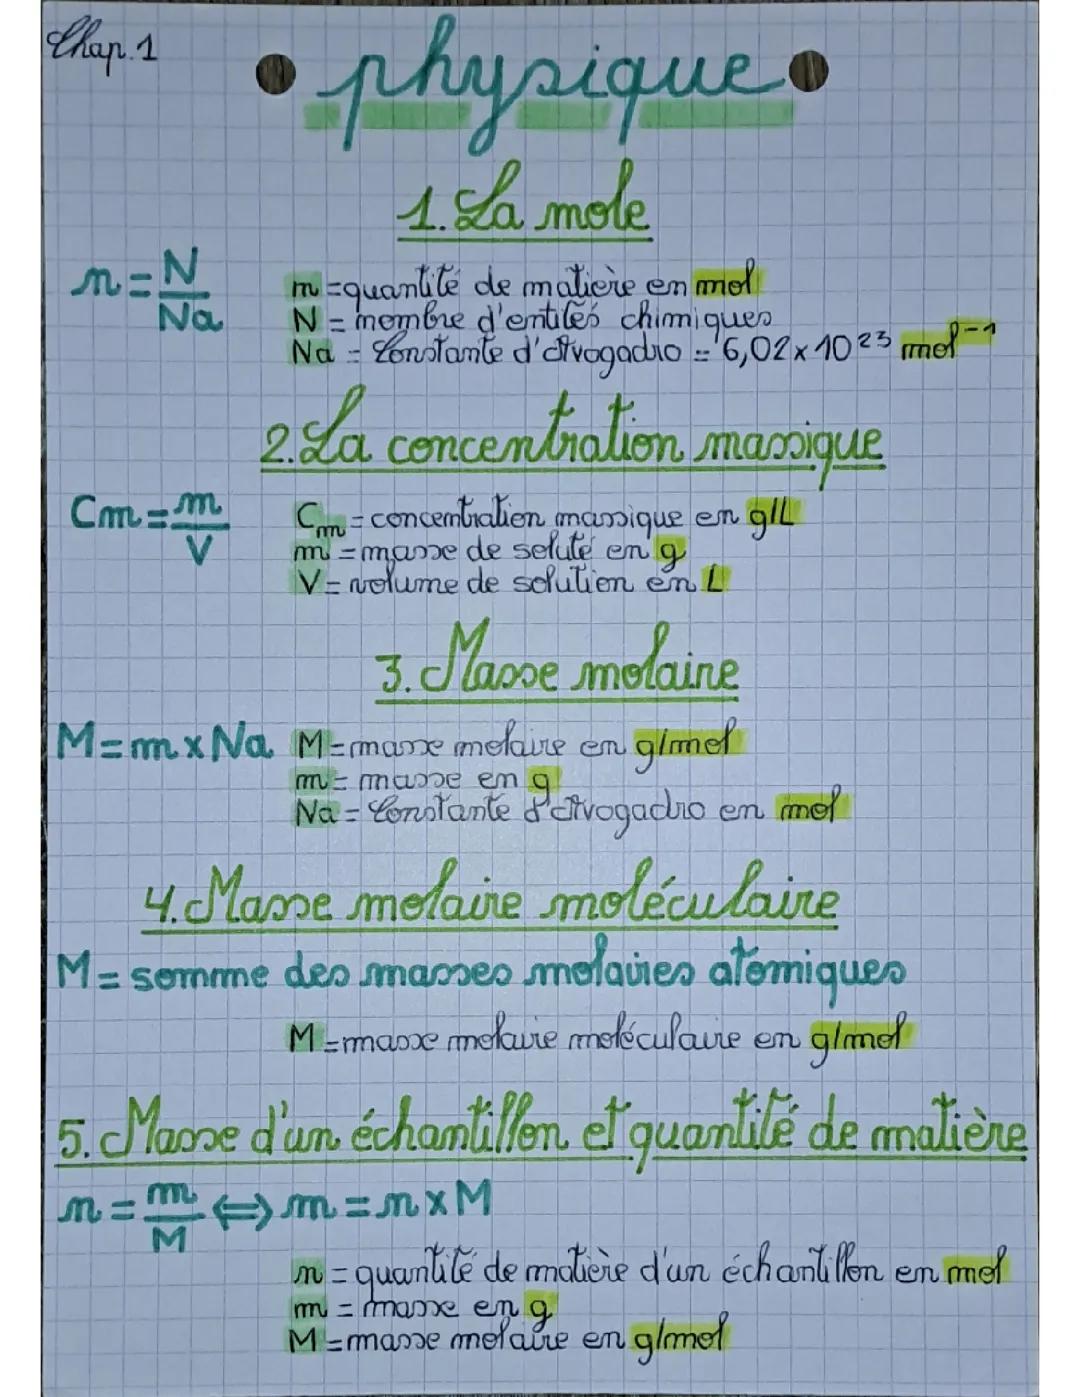 Chap. 1
physique
1. La mole
n = N / Na
n = quantité de matière en mol
N = nombre d'entités chimiques
Na = Constante d'Avogadro = 6,02 x 10²³ mol⁻¹
2. La concentration massique
Cm = m / V
Cm = concentration massique en g/L
m = masse de soluté en g
V = volume de solution en L
3. Masse molaire
M = m x Na
M = masse molaire en g/mol
m = masse en g
Na = Constante d'Avogadro en mol
4. Masse molaire moléculaire
M = somme des masses molaires atomiques
M = masse molaire moléculaire en g/mol
5. Masse d'un échantillon et quantité de matière
n = m / M ⇔ m = n x M
n = quantité de matière d'un échantillon en mol
m = masse en g
M = masse molaire en g/mol